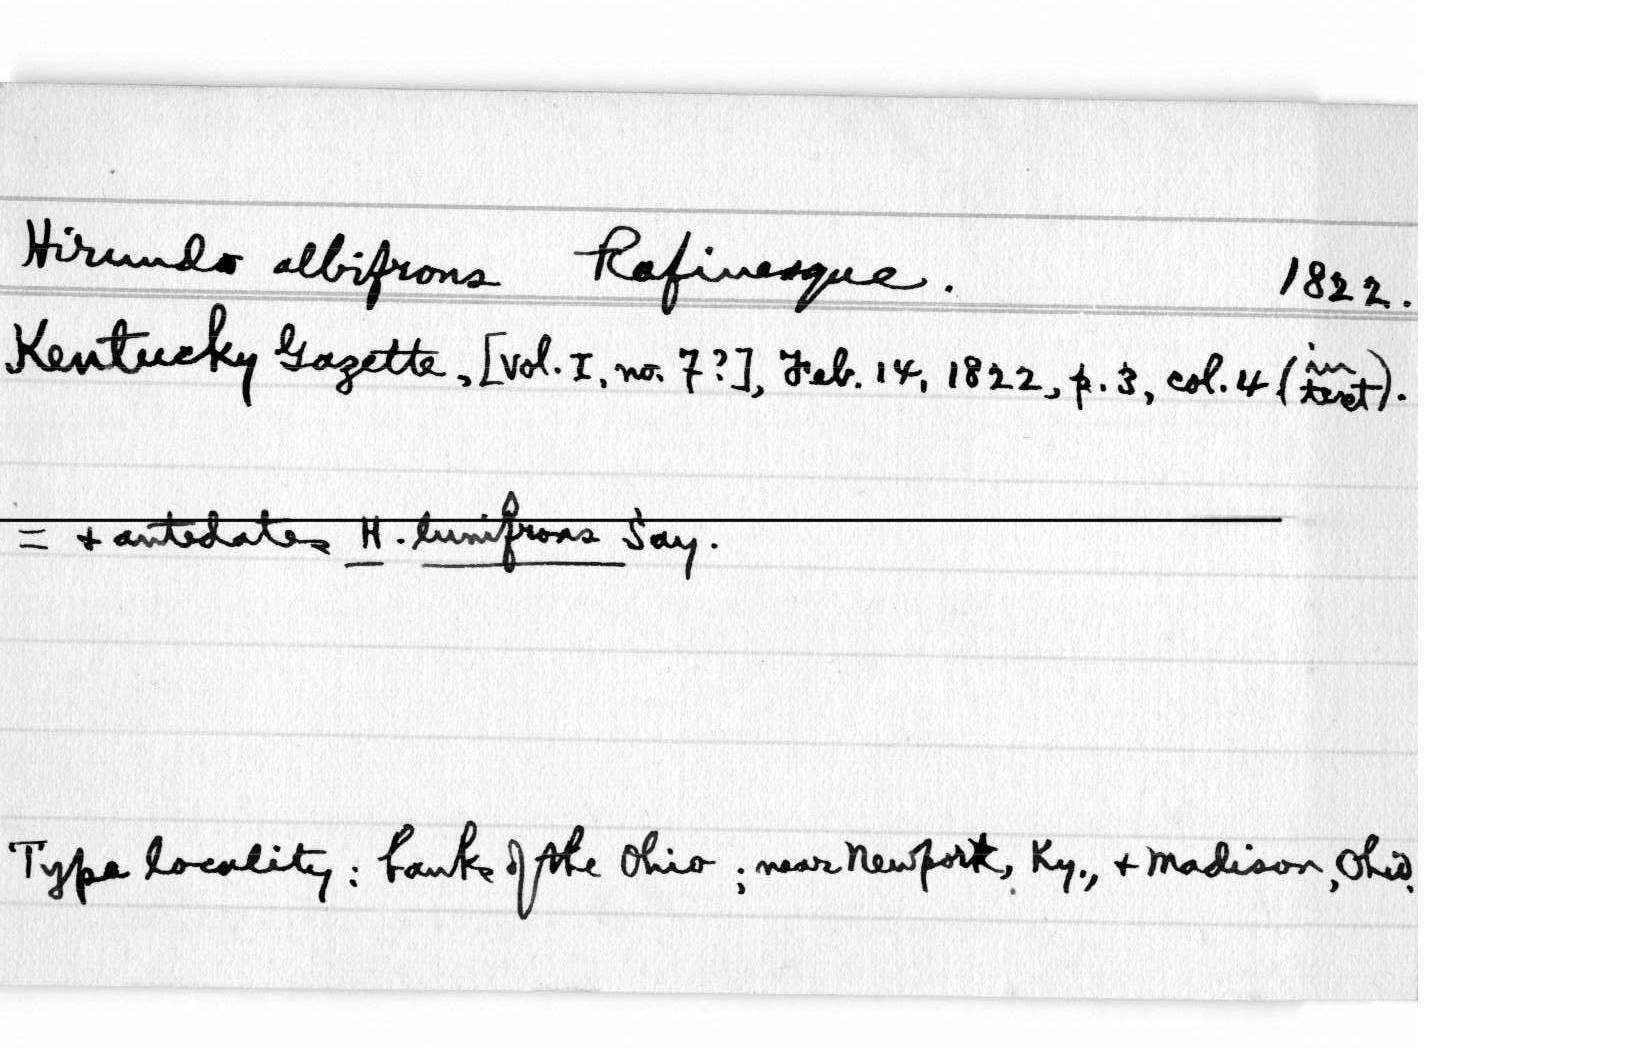 Hirundo albifrons Rafinesque. 1822.
Kentucky Gazette, [vol. I, no. 7?], Feb. 14, 1822, p. 3, col. 4 (in text).
= + antedates H. lunifrons Say.
Type locality: banks of the Ohio; near Newport, Ky., + Madison, Ohio.